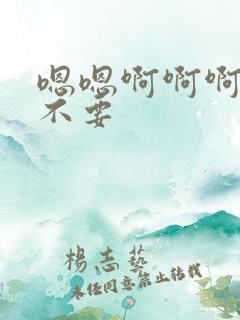 嗯嗯啊啊啊
不要
楊志藝
未经同意禁止转载